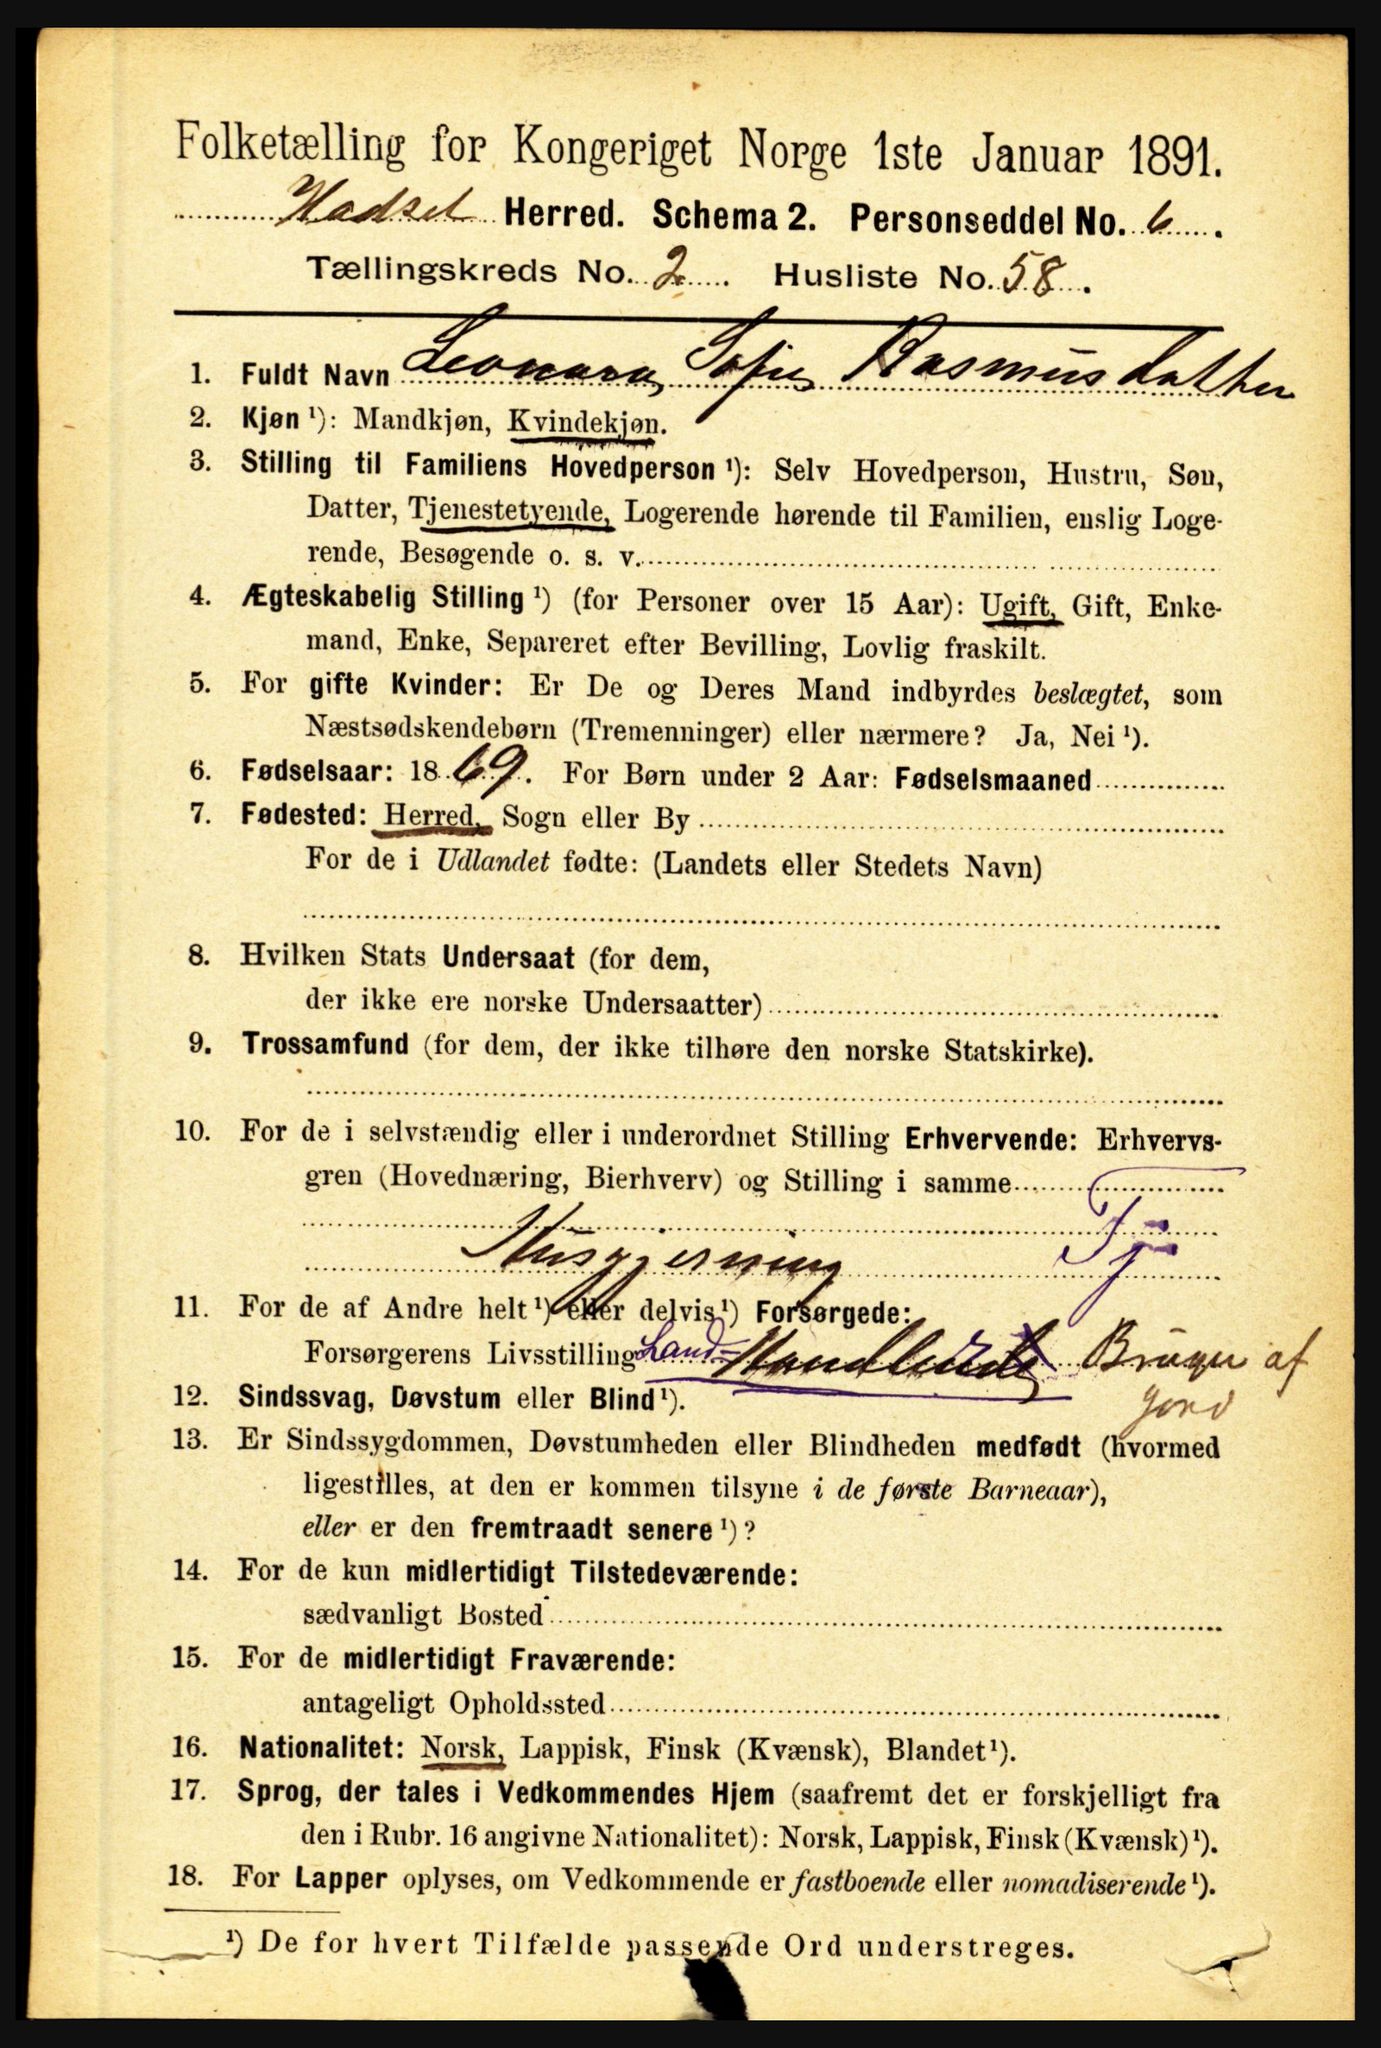 Folketælling for Kongeriget Norge 1ste Januar 1891.
Hadsel Herred. Schema 2. Personseddel No. 6.
Tællingskreds No. 2. Husliste No. 58.
1. Fuldt Navn Leonara Sofie Rasmusdatter
2. Kjøn ¹): Mandkjøn, Kvindekjøn.
3. Stilling til Familiens Hovedperson ¹): Selv Hovedperson, Hustru, Søn,
Datter, Tjenestetyende, Logerende hørende til Familien, enslig Loge-
rende, Besøgende o. s. v.
4. Ægteskabelig Stilling ¹) (for Personer over 15 Aar): Ugift, Gift, Enke-
mand, Enke, Separeret efter Bevilling, Lovlig fraskilt.
5. For gifte Kvinder: Er De og Deres Mand indbyrdes beslægtet, som
Næstsødskendebørn (Tremenninger) eller nærmere? Ja, Nei ¹).
6. Fødselsaar: 1869. For Børn under 2 Aar: Fødselsmaaned
7. Fødested: Herred, Sogn eller By
For de i Udlandet fødte: (Landets eller Stedets Navn)
8. Hvilken Stats Undersaat (for dem,
der ikke ere norske Undersaatter)
9. Trossamfund (for dem, der ikke tilhøre den norske Statskirke).
10. For de i selvstændig eller i underordnet Stilling Erhvervende: Erhvervs-
gren (Hovednæring, Bierhverv) og Stilling i samme
Husgjerning Tj
11. For de af Andre helt ¹) eller delvis ¹) Forsørgede:
Forsørgerens Livsstilling Land= Handlende Bruger af
Jord
12. Sindssvag, Døvstum eller Blind ¹).
13. Er Sindssygdommen, Døvstumheden eller Blindheden medfødt (hvormed
ligestilles, at den er kommen tilsyne i de første Barneaar),
eller er den fremtraadt senere ¹)?
14. For de kun midlertidigt Tilstedeværende:
sædvanligt Bosted
15. For de midlertidigt Fraværende:
antageligt Opholdssted
16. Nationalitet: Norsk, Lappisk, Finsk (Kvænsk), Blandet ¹).
17. Sprog, der tales i Vedkommendes Hjem (saafremt det er forskjelligt fra
den i Rubr. 16 angivne Nationalitet): Norsk, Lappisk, Finsk (Kvænsk) ¹).
18. For Lapper oplyses, om Vedkommende er fastboende eller nomadiserende ¹).
¹) De for hvert Tilfælde passende Ord understreges.